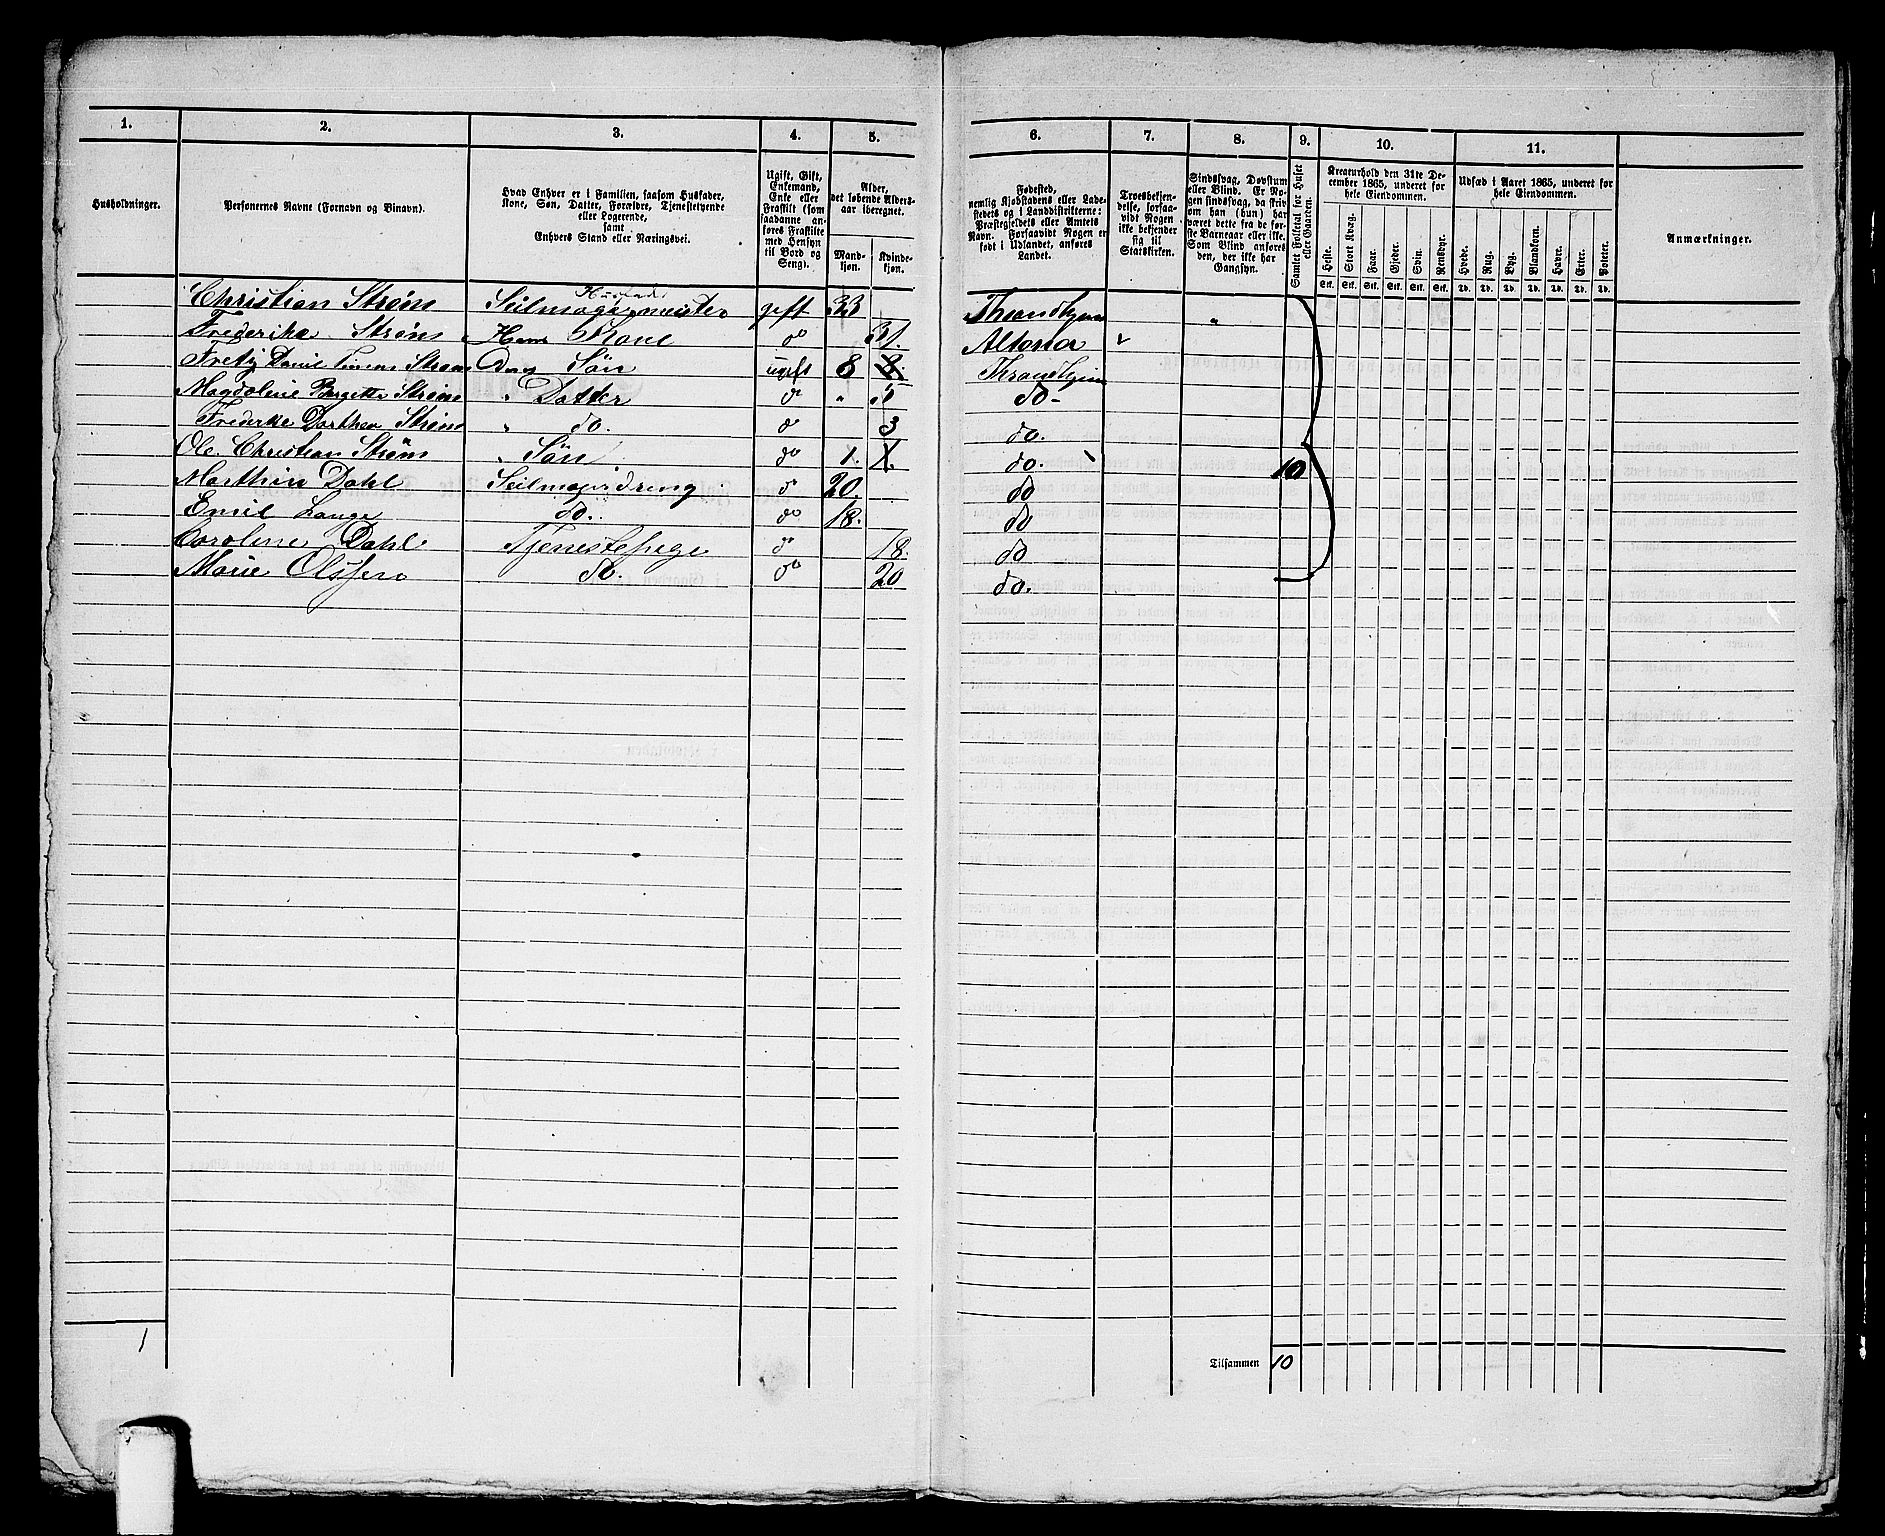 1. 2. 3. 4. 5. 6. 7. 8. 9. 10. 11.
Husholdninger.
Personernes Navne (Fornavn og Tilnavn).
Hvad Enhver er i Familien, saasom Husfader,
Kone, Søn, Datter, Forældre, Tjenestetyende
eller Logerende,
samt
Enhvers Stand eller Næringsvei.
Ugift, Gift,
Enkemand,
Enke eller
Fraskilt (som
saadanne an-
føres Fraskilte
med Hensyn
til Bord og
Seng).
Alder,
det løbende Alders-
aar iberegnet.
Mand-
kjøn.
Kvinde-
kjøn.
Fødested,
nemlig Kjøbstadens eller Lade-
stedets og i Landdistrikterne:
Præstegjeldets eller Amtets
Navn. Forsaavidt Nogen er
født i Udlandet, anføres
Landet.
Troesbekjen-
delse, forsaa-
vidt Nogen
ikke bekjender
sig til
Statskirken.
Sindssvag, Døvstum
eller Blind. Er No-
gen sindssvag, da skriv
om han (hun) har
været dette fra de før-
ste Barneaar eller ikke.
Som Blind anføres
den, der ikke har
Gangsyn.
Samlet Folketal for Huset
eller Gaarden.
Kreaturhold den 31te De-
cember 1865, underet for
hele Eiendommen.
Heste. Stort Kvæg. Faar. Gjeder. Svin. Rensdyr.
Stk. Stk. Stk. Stk. Stk. Stk.
Udsæd i Aaret 1865, underet for
hele Eiendommen.
Hvede. Rug. Byg. Blandkorn. Havre. Erter. Poteter.
Td. Td. Td. Td. Td. Td. Td.
Anmærkninger.
Christian Strøm Seilmagermeister gift 33 Throndhjem "
Frederika Strøm Hans Kone do 31. Altona
Fritz Daniel Strøm Deres Søn ugift 8 8. Throndhjem
Magdoline Bergette Strøm " Datter do " 5 do-
Frederke Dorthea Strøm " do. do 3 do.
Ole Christian Strøm " Søn do 1. 1. do. 10
Marthin Dahl Seilmagerdreng do 20. do
Emil Lange do. do 18. do
Caroline Dahl Tjenestepige do 18. do
Marie Olssen do. do 20 do.
1 Tilsammen 10